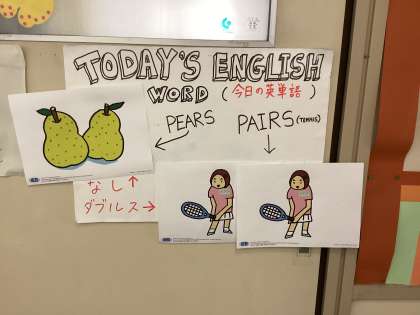 TODAY'S ENGLISH
WORD (今日の英単語)
PEARS
PAIRS (TENNIS)
なし↑
ダブルス→